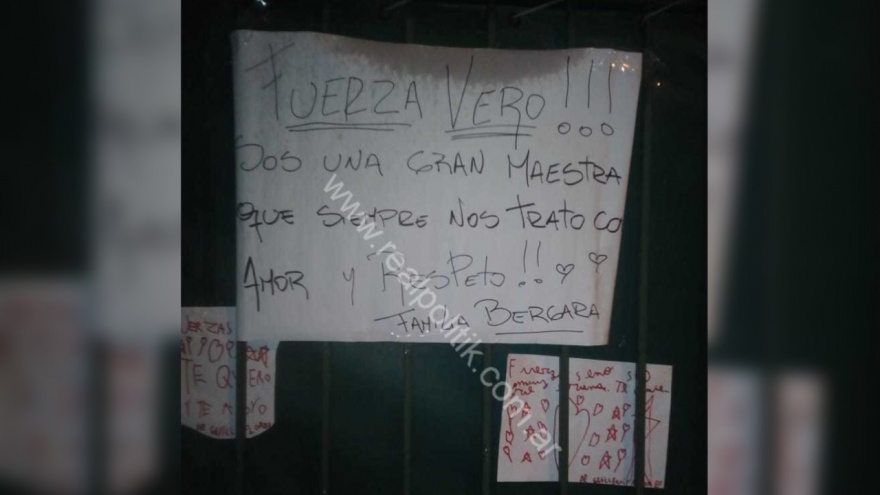 FUERZA VERO!!!
SOS UNA GRAN MAESTRA
QUE SIEMPRE NOS TRATO CO
AMOR Y RESPETO!!
FAMILIA BERGARA
www.realpolitik.com.ar
TE QUIERO
Y TE APOYO